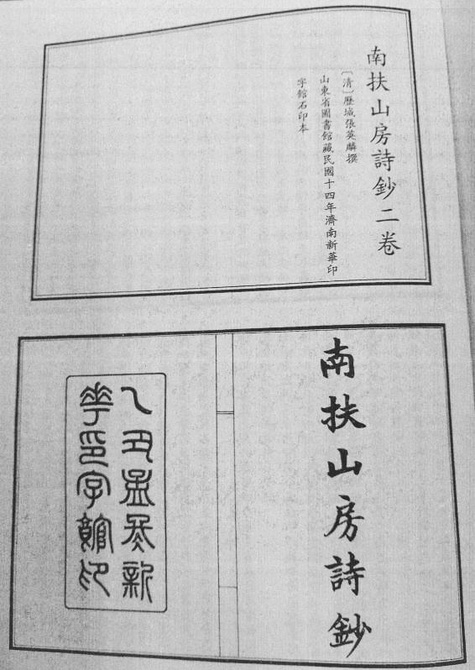 南扶山房詩鈔二卷
〔清〕歷城張英麟撰
山東省圖書館藏民國十四年濟南新華印
字館石印本
南扶山房詩鈔
乙丑孟冬新
華印字館印